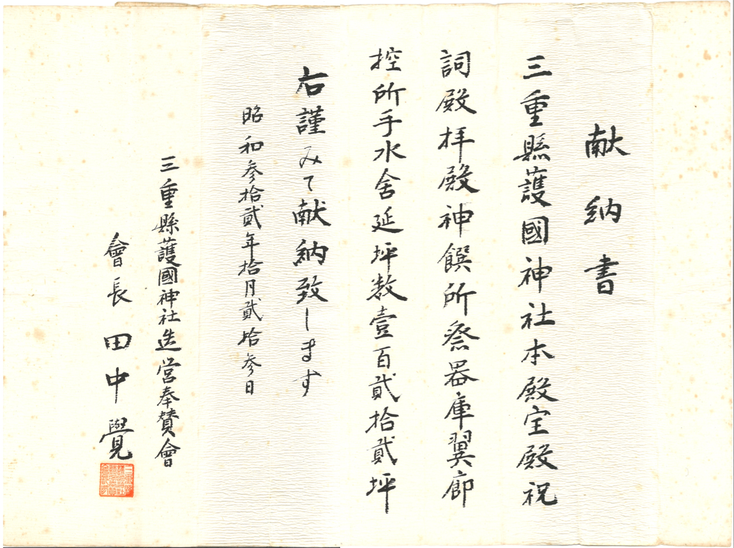 献納書
三重縣護國神社本殿宝殿祝
詞殿拝殿神饌所祭器庫翼廊
控所手水舎延坪数壹百貳拾貳坪
右謹みて献納致します
昭和参拾貳年拾月貳拾参日
三重縣護國神社造営奉賛會
會長 田中覺